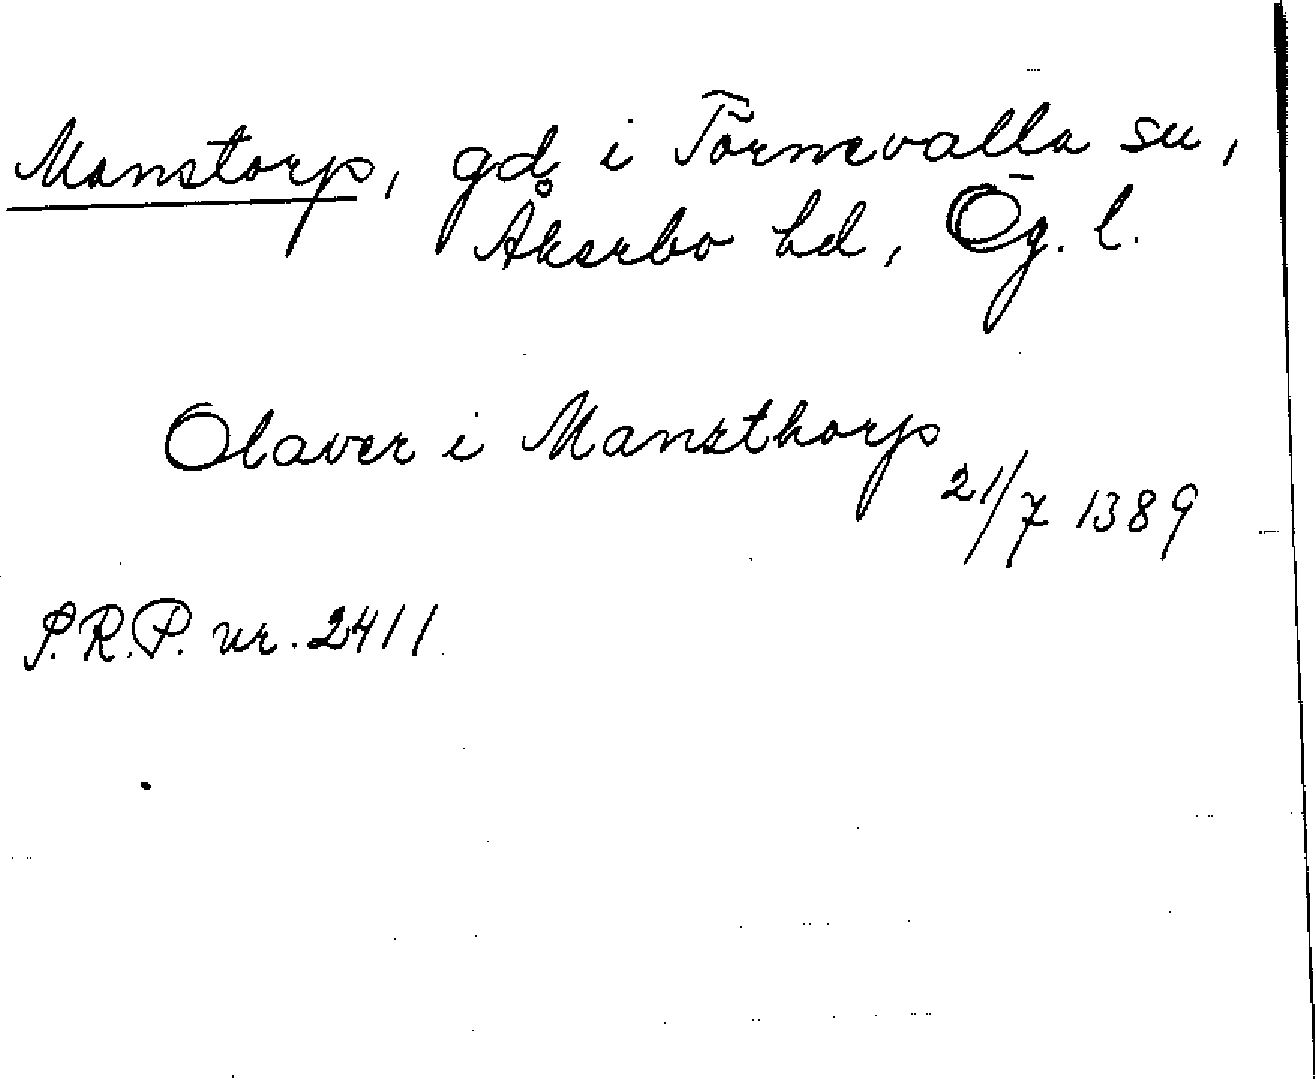 Manstorp, gd i Törnevalla sn,
Åkerbo hd, Ög. l.
Olaver i Mansthorp
21/7 1389
P.R.P. nr. 2411.